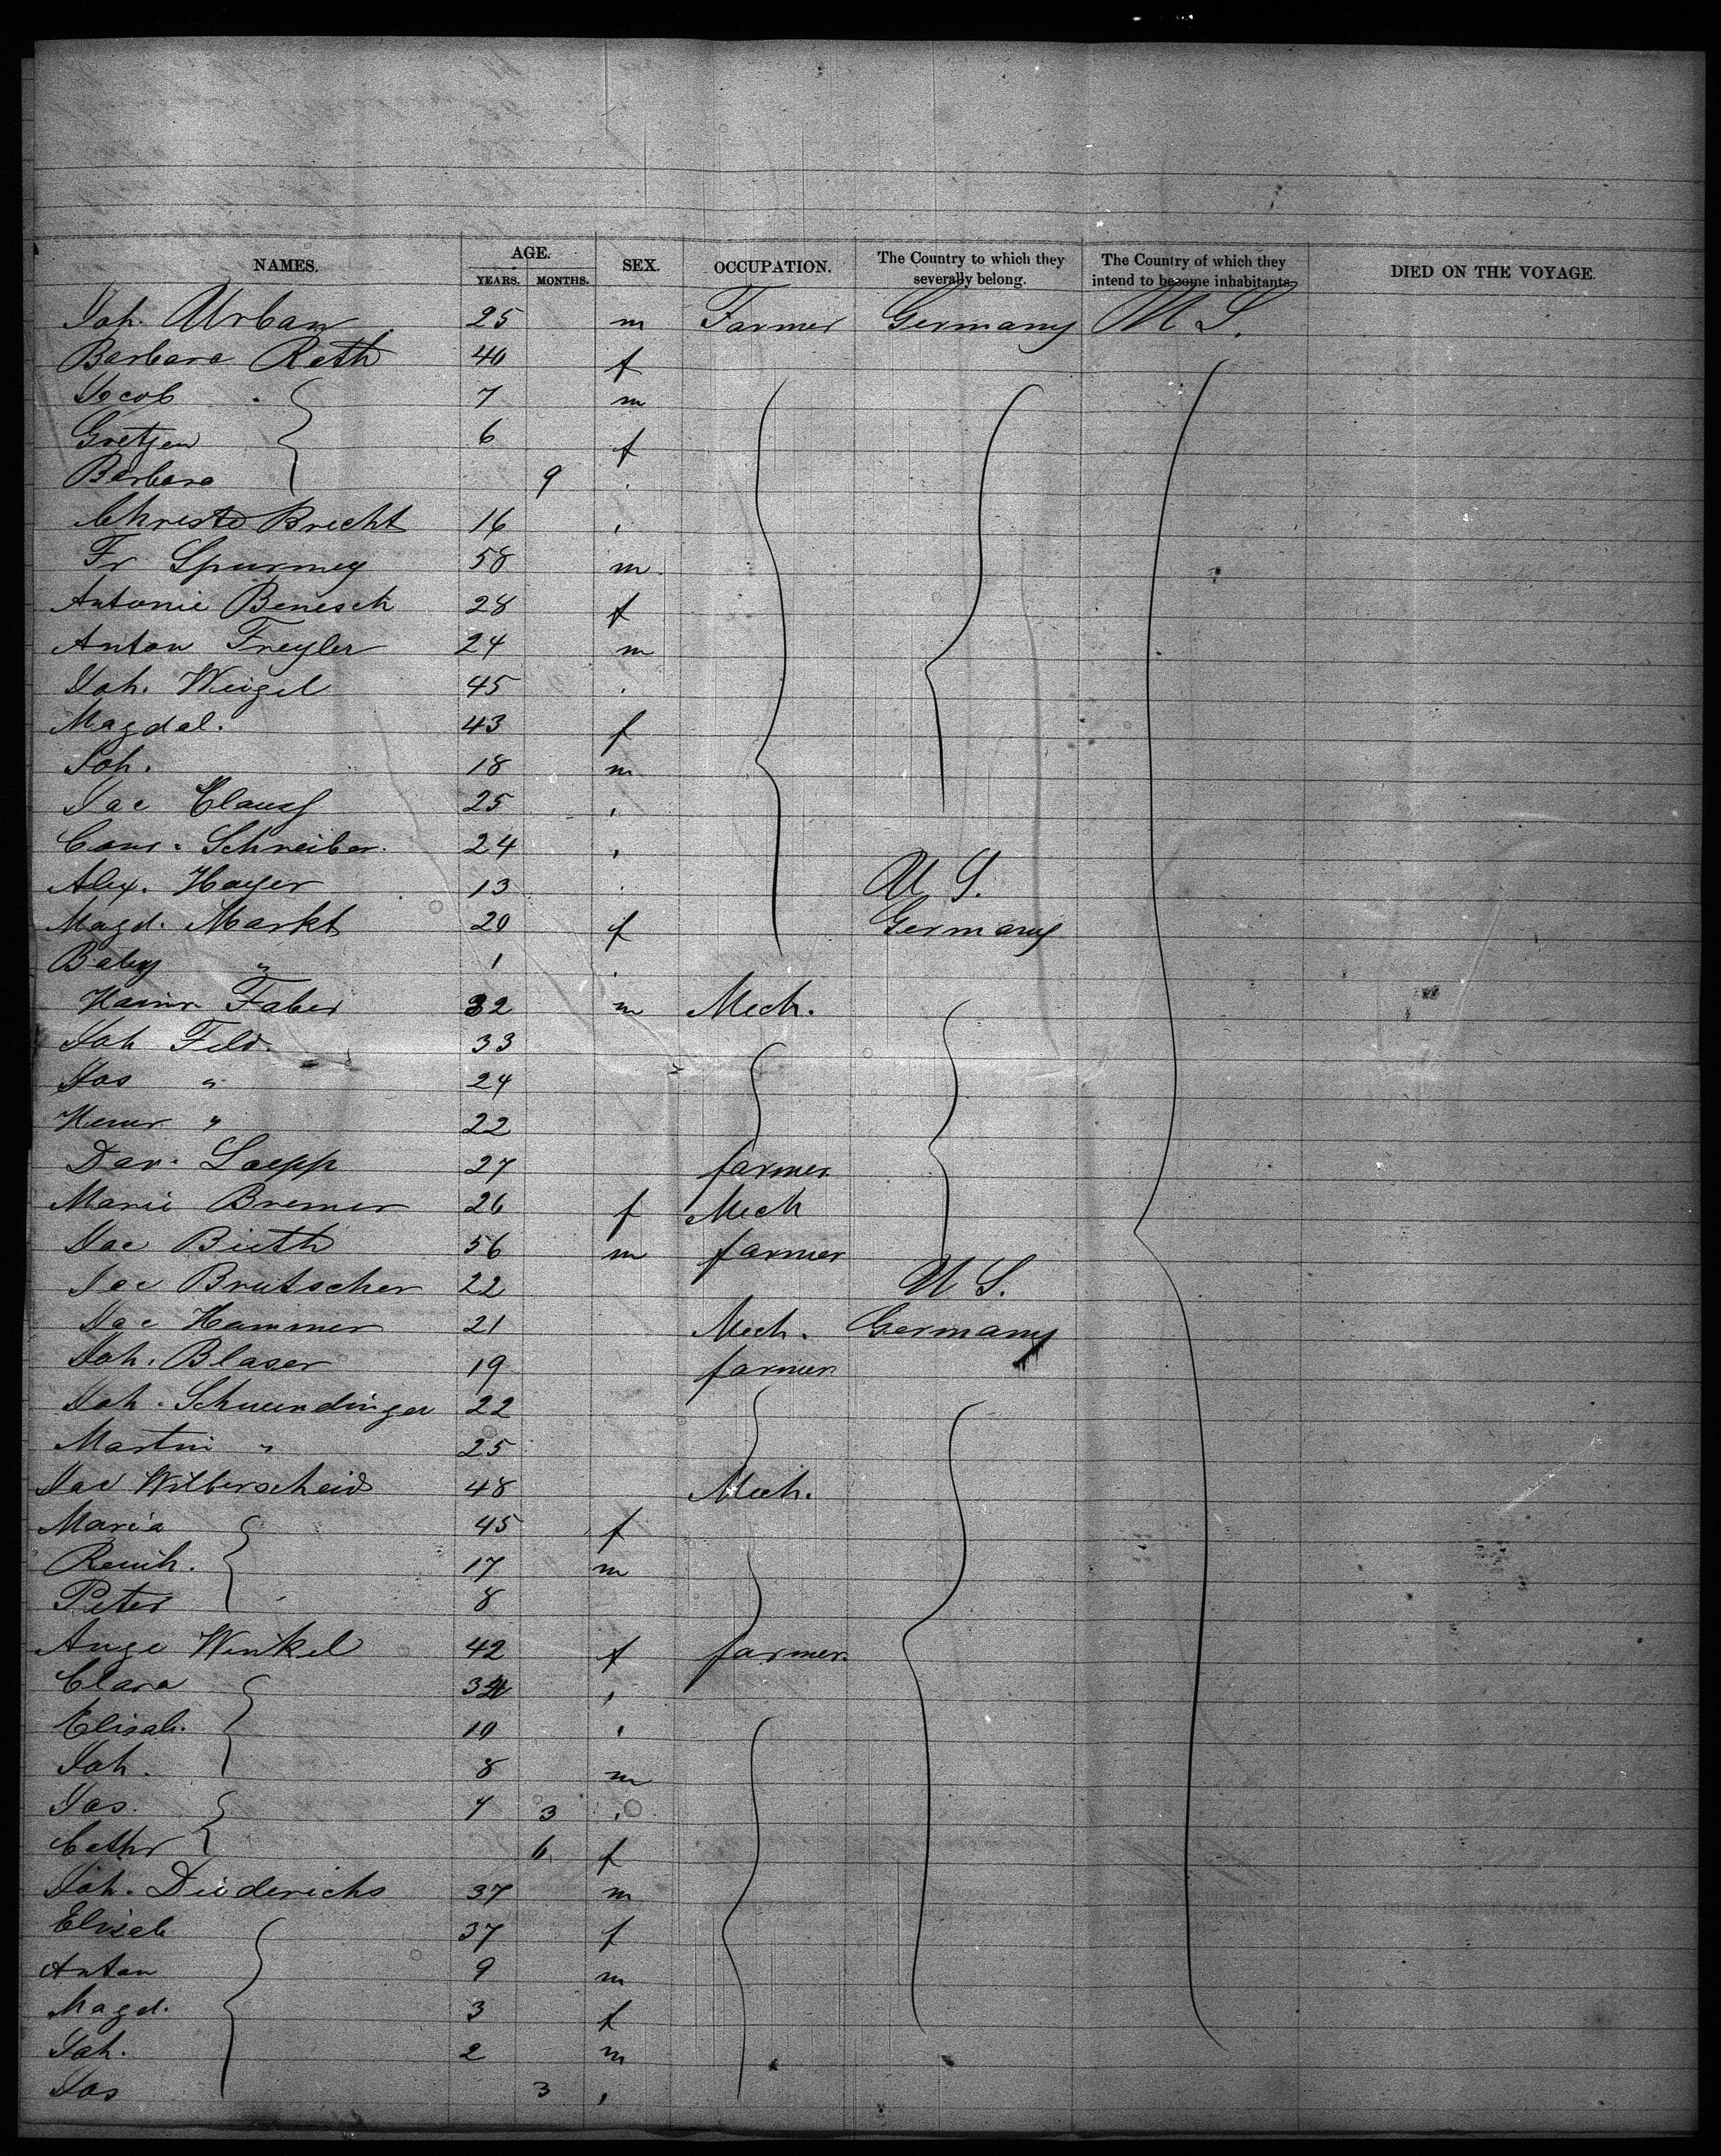 NAMES. AGE. YEARS. MONTHS. SEX. OCCUPATION. The Country to which they severally belong. The Country of which they intend to become inhabitants. DIED ON THE VOYAGE.
Joh. Urban 25 m Farmer Germany U S.
Barbara Reth 40 f
Jacob 7 m
Gretjen 6 f
Barbara 9 "
Christo Brecht 16 "
Fr Spurmey 58 m
Antonie Benesch 28 f
Anton Freyler 24 m
Joh. Weigel 45 "
Magdal. 43 f
Joh. 18 m
Jac Clauss 25 "
Conr. Schreiber 24 "
Alex. Hayer 13 " U S.
Magd. Markt 20 f Germany
Baby " 1 "
Heinr Faber 32 m Mech.
Joh Feld. 33
Jos " 24
Heinr " 22
Dav. Loepp 27 farmer
Marie Bremer 26 f Mech
Jac Bieth 56 m farmer
Jac Brutscher 22 U S.
Jac Hammer 21 Mech. Germany
Joh. Blaser 19 farmer
Joh. Schwendinger 22
Martin " 25
Jac Wilberscheid 48 Mech.
Maria 45 f
Reinh. 17 m
Peter 8
Ange Winkel 42 f farmer
Clara 34 "
Elisab. 10 "
Joh. 8 m
Jos. 4 3 "
Cathr 6 f
Joh. Diederichs 37 m
Elisab 37 f
Anton 9 m
Magd. 3 f
Joh. 2 m
Jos 3 "